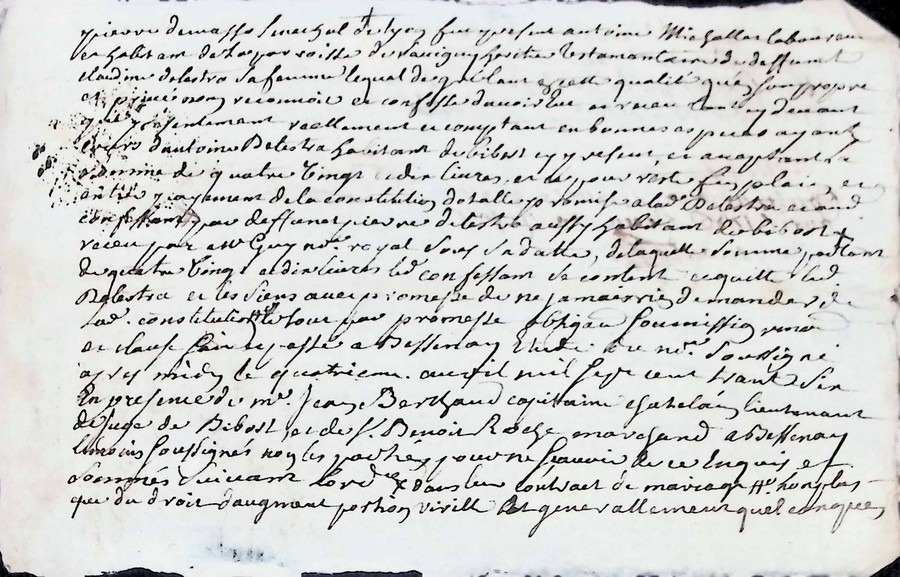 pierre demasso senechal de lyon fut present antoine Michallat laboureur
et habitant de la parroisse de Savigny heritier testamentaire de deffunte
claudine delestra sa femme lequel de gré tant en cette qualité qu'en son propre
et privé nom reconnoit et confesse d'avoir eu et receu
presentement reellement et comptant en bonnes especes ayant
cours d'antoine Delestra habitant de bibost cy present et acceptant la
somme de quatre vingt et dix livres et ce pour reste fin, plain, et
entier payement de la constitution dotalle promise a lad Delestra et aud
confessant par deffunct pierre delestra aussy habitant de bibost
receu par me Guy nre royal sous sa datte, de laquelle somme
de quatre vingt et dix livres led confessant se contente et quitte led
Delestra et les siens avec promesse de ne jamais rien demander de
lad. constitution le tout par promesse obligaon soumission
et clause fait et passé a Bessenay Etude du nre soussigné
apres midy le quatrieme avril mil sept cent trante six
En presence de me Jean Berthaud capitaine chatelain lieutenant
de juge de Bibost, et de s. Benoit Roche marchand a Bessenay
temoins soussignes non les parties pour ne scavoir de ce Enquis et
sommés suivant l'ordce dans leur contract de mariage
que du droit d'augment portion virille et generallement quelconques